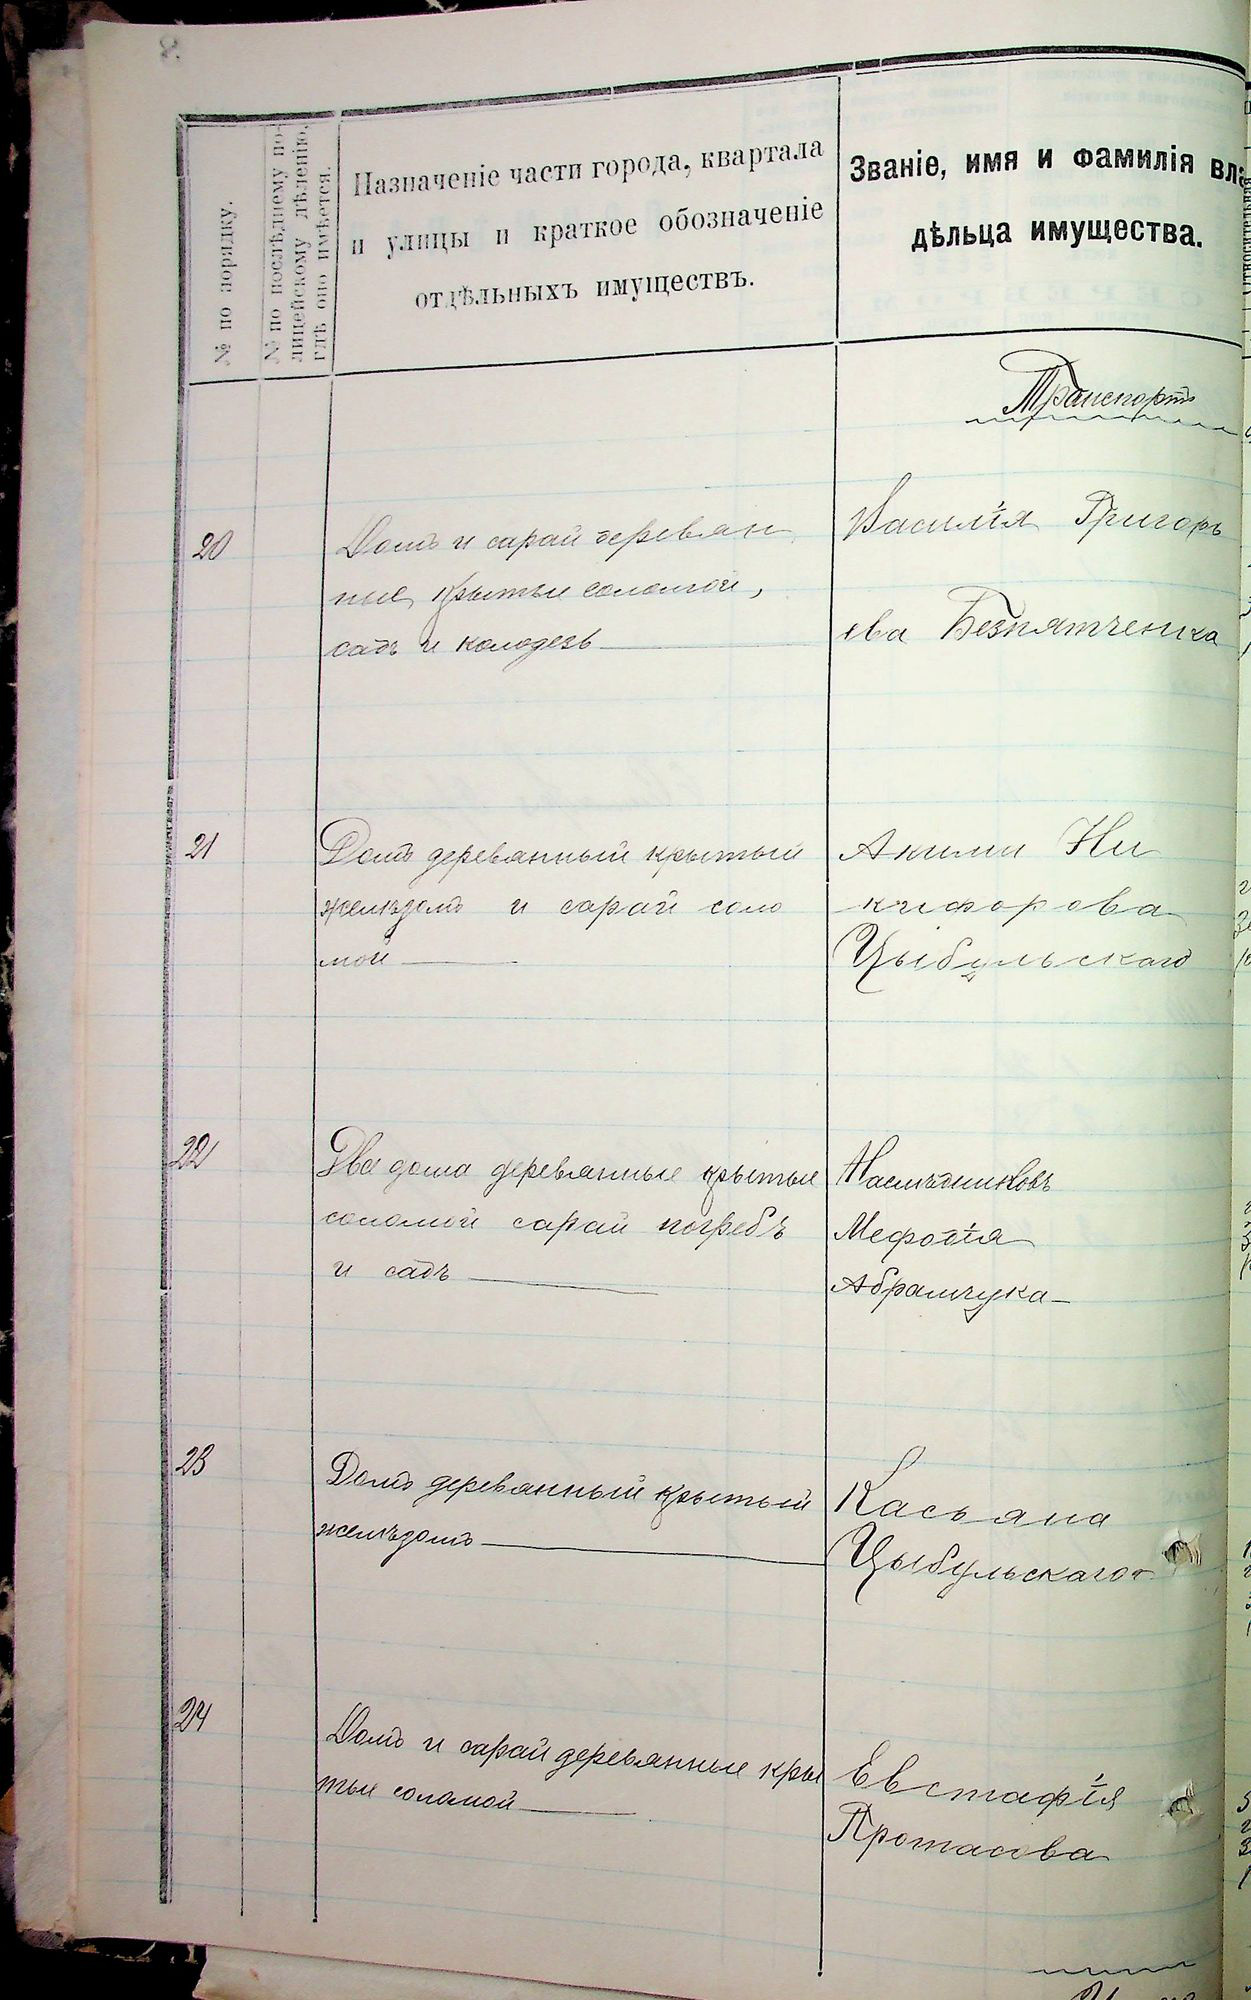 8.
№ по порядку.
№ по послѣднему по-
лицейскому дѣленію,
гдѣ оно имѣется.
Назначеніе части города, квартала
и улицы и краткое обозначеніе
отдѣльныхъ имуществъ.
Званіе, имя и фамилія вла
дѣльца имущества.
Транспортъ
20
Домъ и сарай деревян
ные, крытые соломой,
садъ и колодезь
Василія Григорь
ева Безпятченка
21
Домъ деревянный крытый
желѣзомъ и сарай соло
мой
Акима Ни
кифорова
Цыбульскаго
22
Два дома деревянные крытые
соломой сарай погребъ
и садъ
Наслѣдниковъ
Мефодія
Абрамчука
23
Домъ деревянный крытый
желѣзомъ
Касьяна
Цыбульскаго
24
Домъ и сарай деревянные кры
тые соломой
Евстафія
Протасова